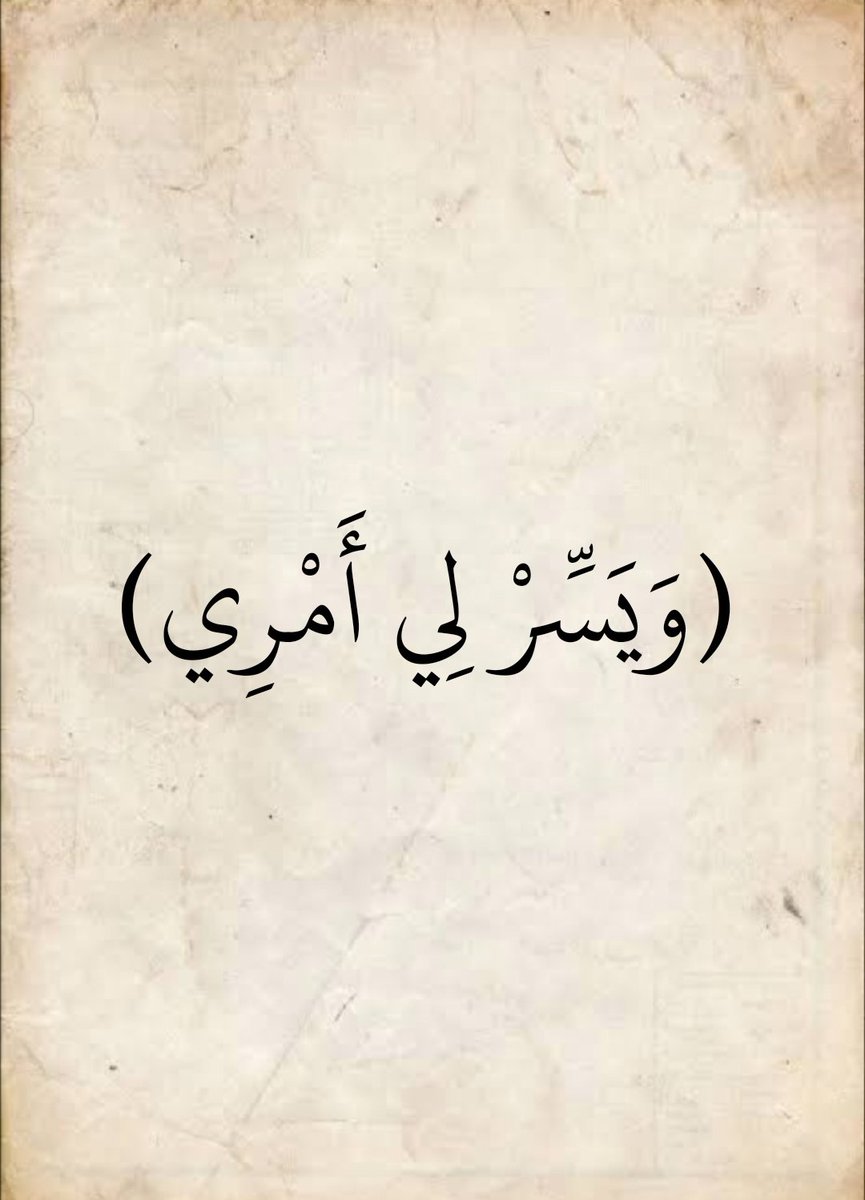 (وَيَسِّرْ لِي أَمْرِي)